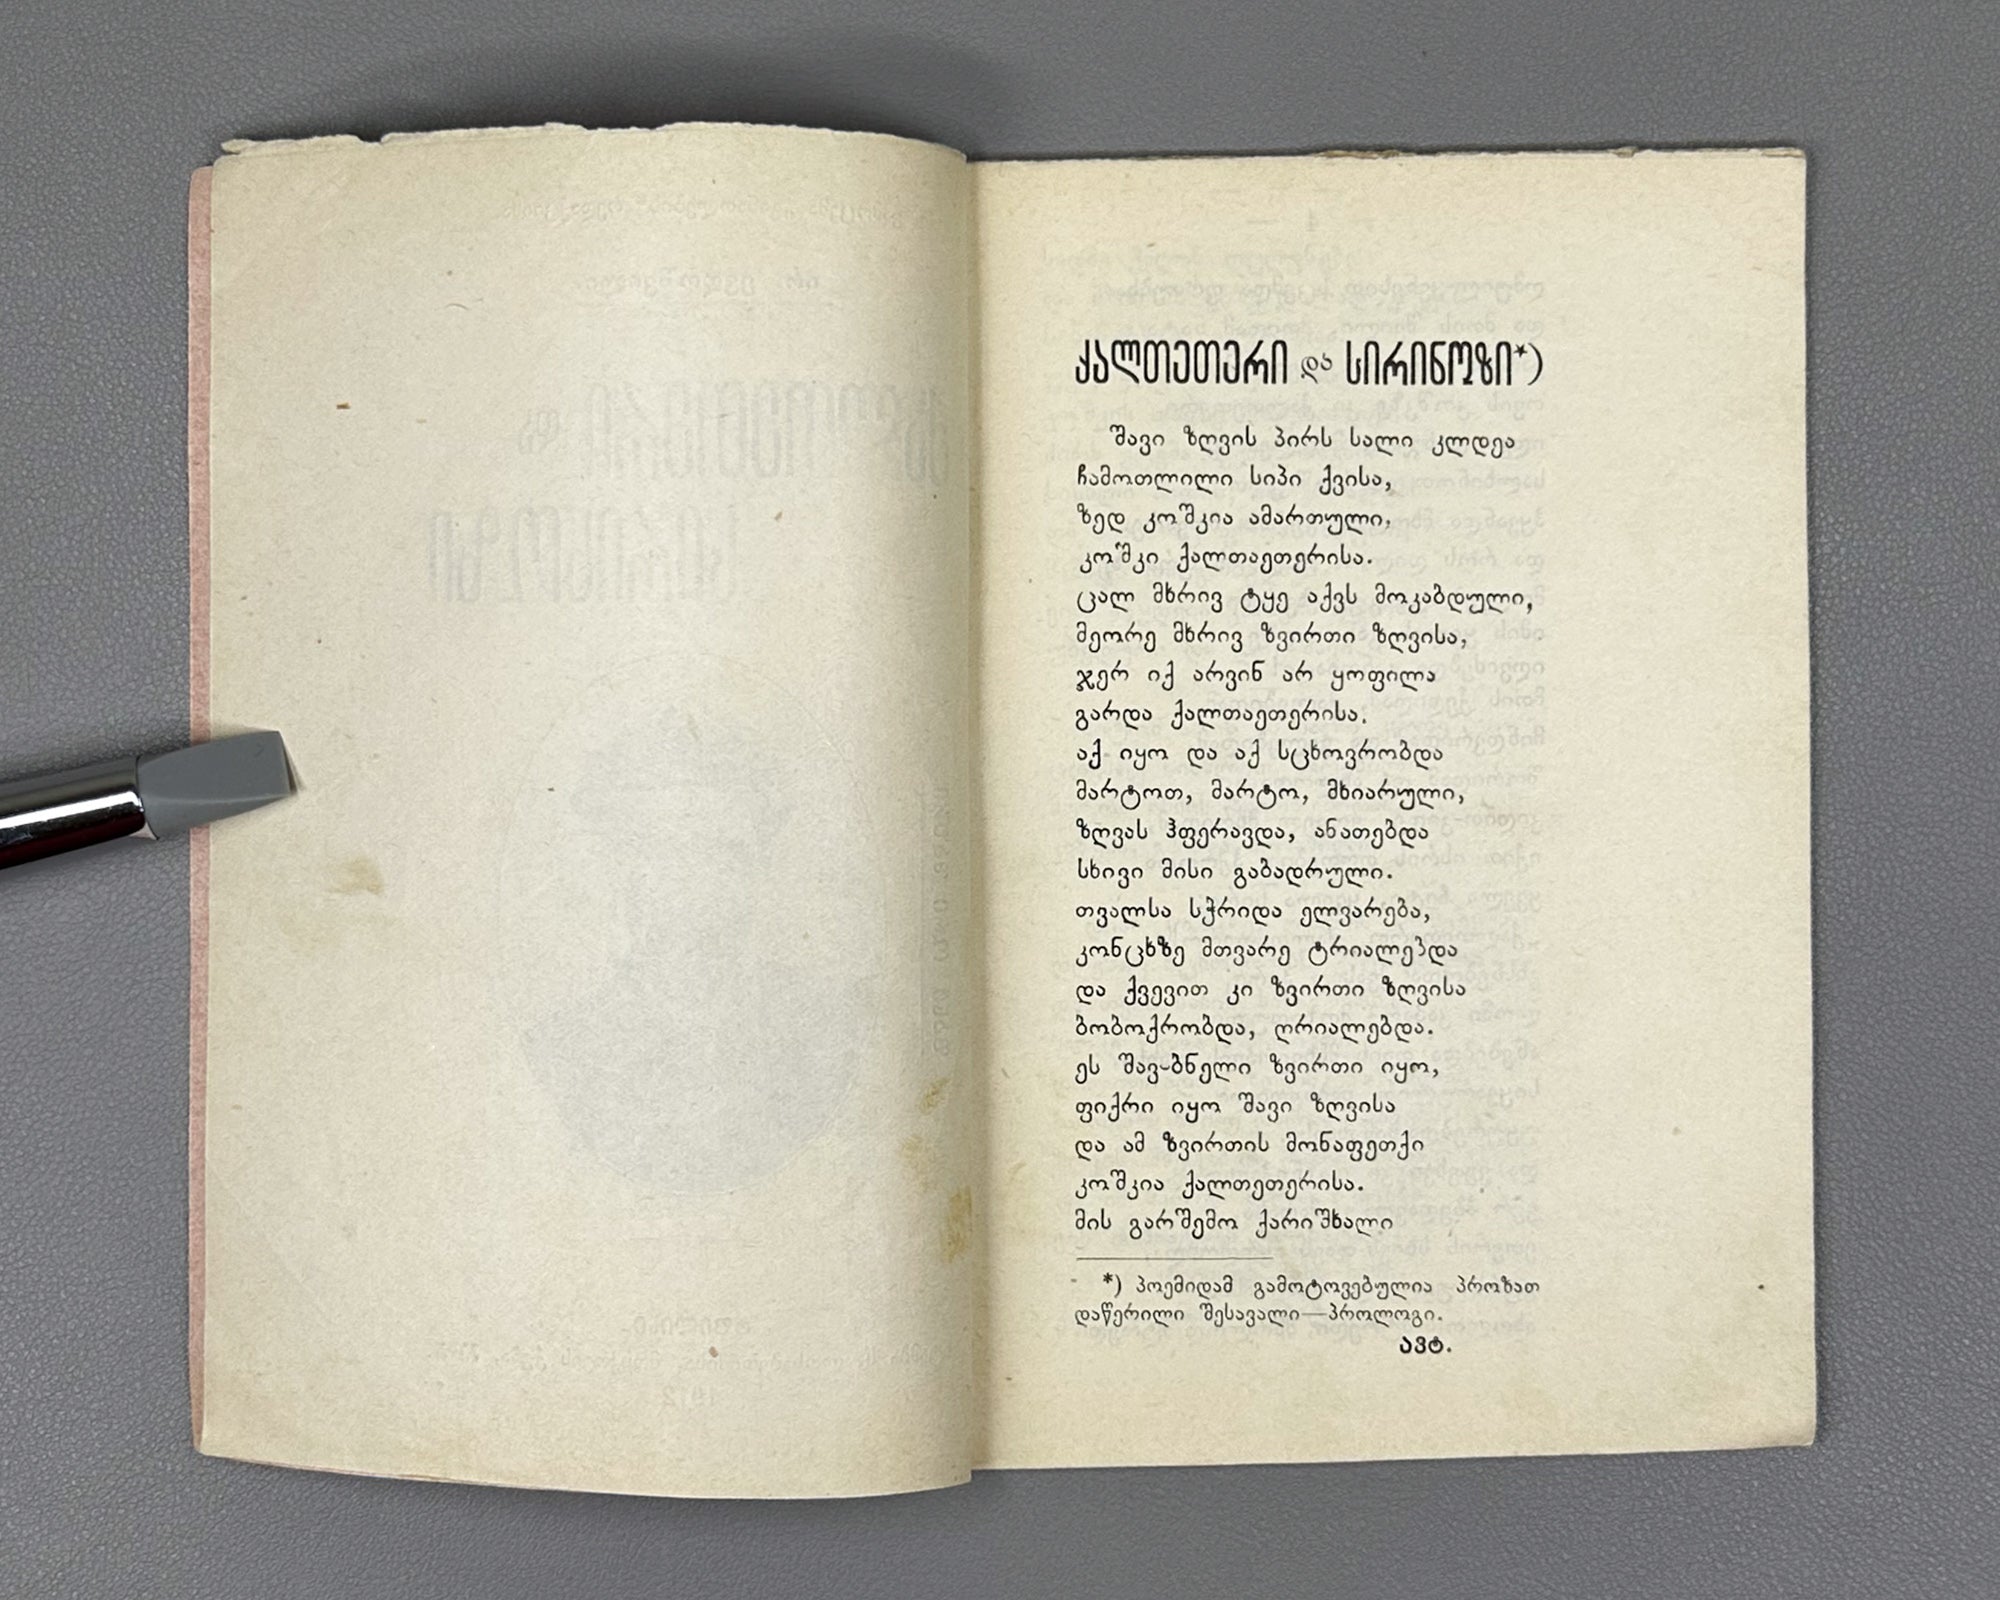 ქალთეთერი და სირინოზი*)
შავი ზღვის პირს სალი კლდეა
ჩამოთლილი სიპი ქვისა,
ზედ კოშკია ამართული,
კოშკი ქალთაეთერისა.
ცალ მხრივ ტყე აქვს მოკაბდული,
მეორე მხრივ ზვირთი ზღვისა,
ჯერ იქ არვინ არ ყოფილა
გარდა ქალთაეთერისა.
აქ იყო და აქ სცხოვრობდა
მარტოთ, მარტო, მხიარული,
ზღვას ჰფერავდა, ანათებდა
სხივი მისი გაბადრული.
თვალსა სჭრიდა ელვარება,
კონცხზე მთვარე ტრიალებდა
და ქვევით კი ზვირთი ზღვისა
ბობოქრობდა, ღრიალებდა.
ეს შავ-ბნელი ზვირთი იყო,
ფიქრი იყო შავი ზღვისა
და ამ ზვირთის მონაფეთქი
კოშკია ქალთეთერისა.
მის გარშემო ქარიშხალი
*) პოემიდამ გამოტოვებულია პროზათ
დაწერილი შესავალი—პროლოგი.
ავტ.